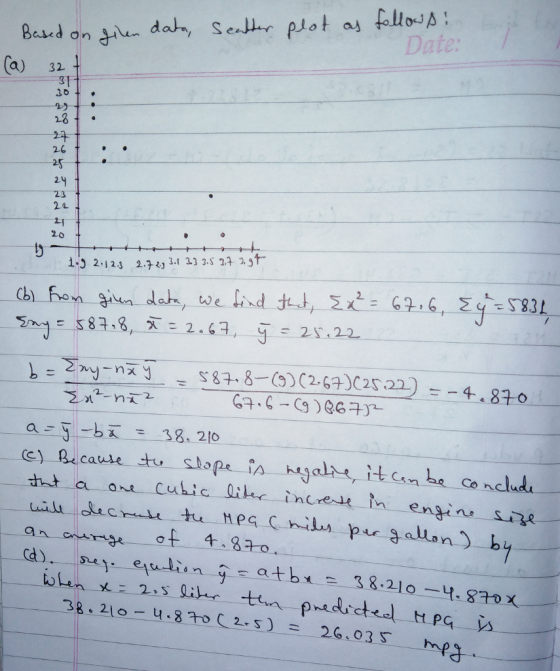 Based on given data, scatter plot as follows:
Date: / /
(a)
32
31
30
29
28
27
26
25
24
23
22
21
20
19
1.9 2.1 2.3 2.7 2.9 3.1 3.3 3.5 3.7 3.9 4
(b) From given data, we find that, Σx² = 67.6, Σy² = 5831,
Σxy = 587.8, x̄ = 2.67, ȳ = 25.22
b = Σxy - n x̄ ȳ / Σx² - n x̄² = 587.8 - (9)(2.67)(25.22) / 67.6 - (9)(2.67)² = -4.870
a = ȳ - b x̄ = 38.210
(c) Because the slope is negative, it can be conclude
that a one cubic liter increase in engine size
will decrease the MPG (miles per gallon) by
an average of 4.870.
(d). reg. equation ŷ = a + bx = 38.210 - 4.870x
when x = 2.5 liter then predicted MPG is
38.210 - 4.870 (2.5) = 26.035 mpg.